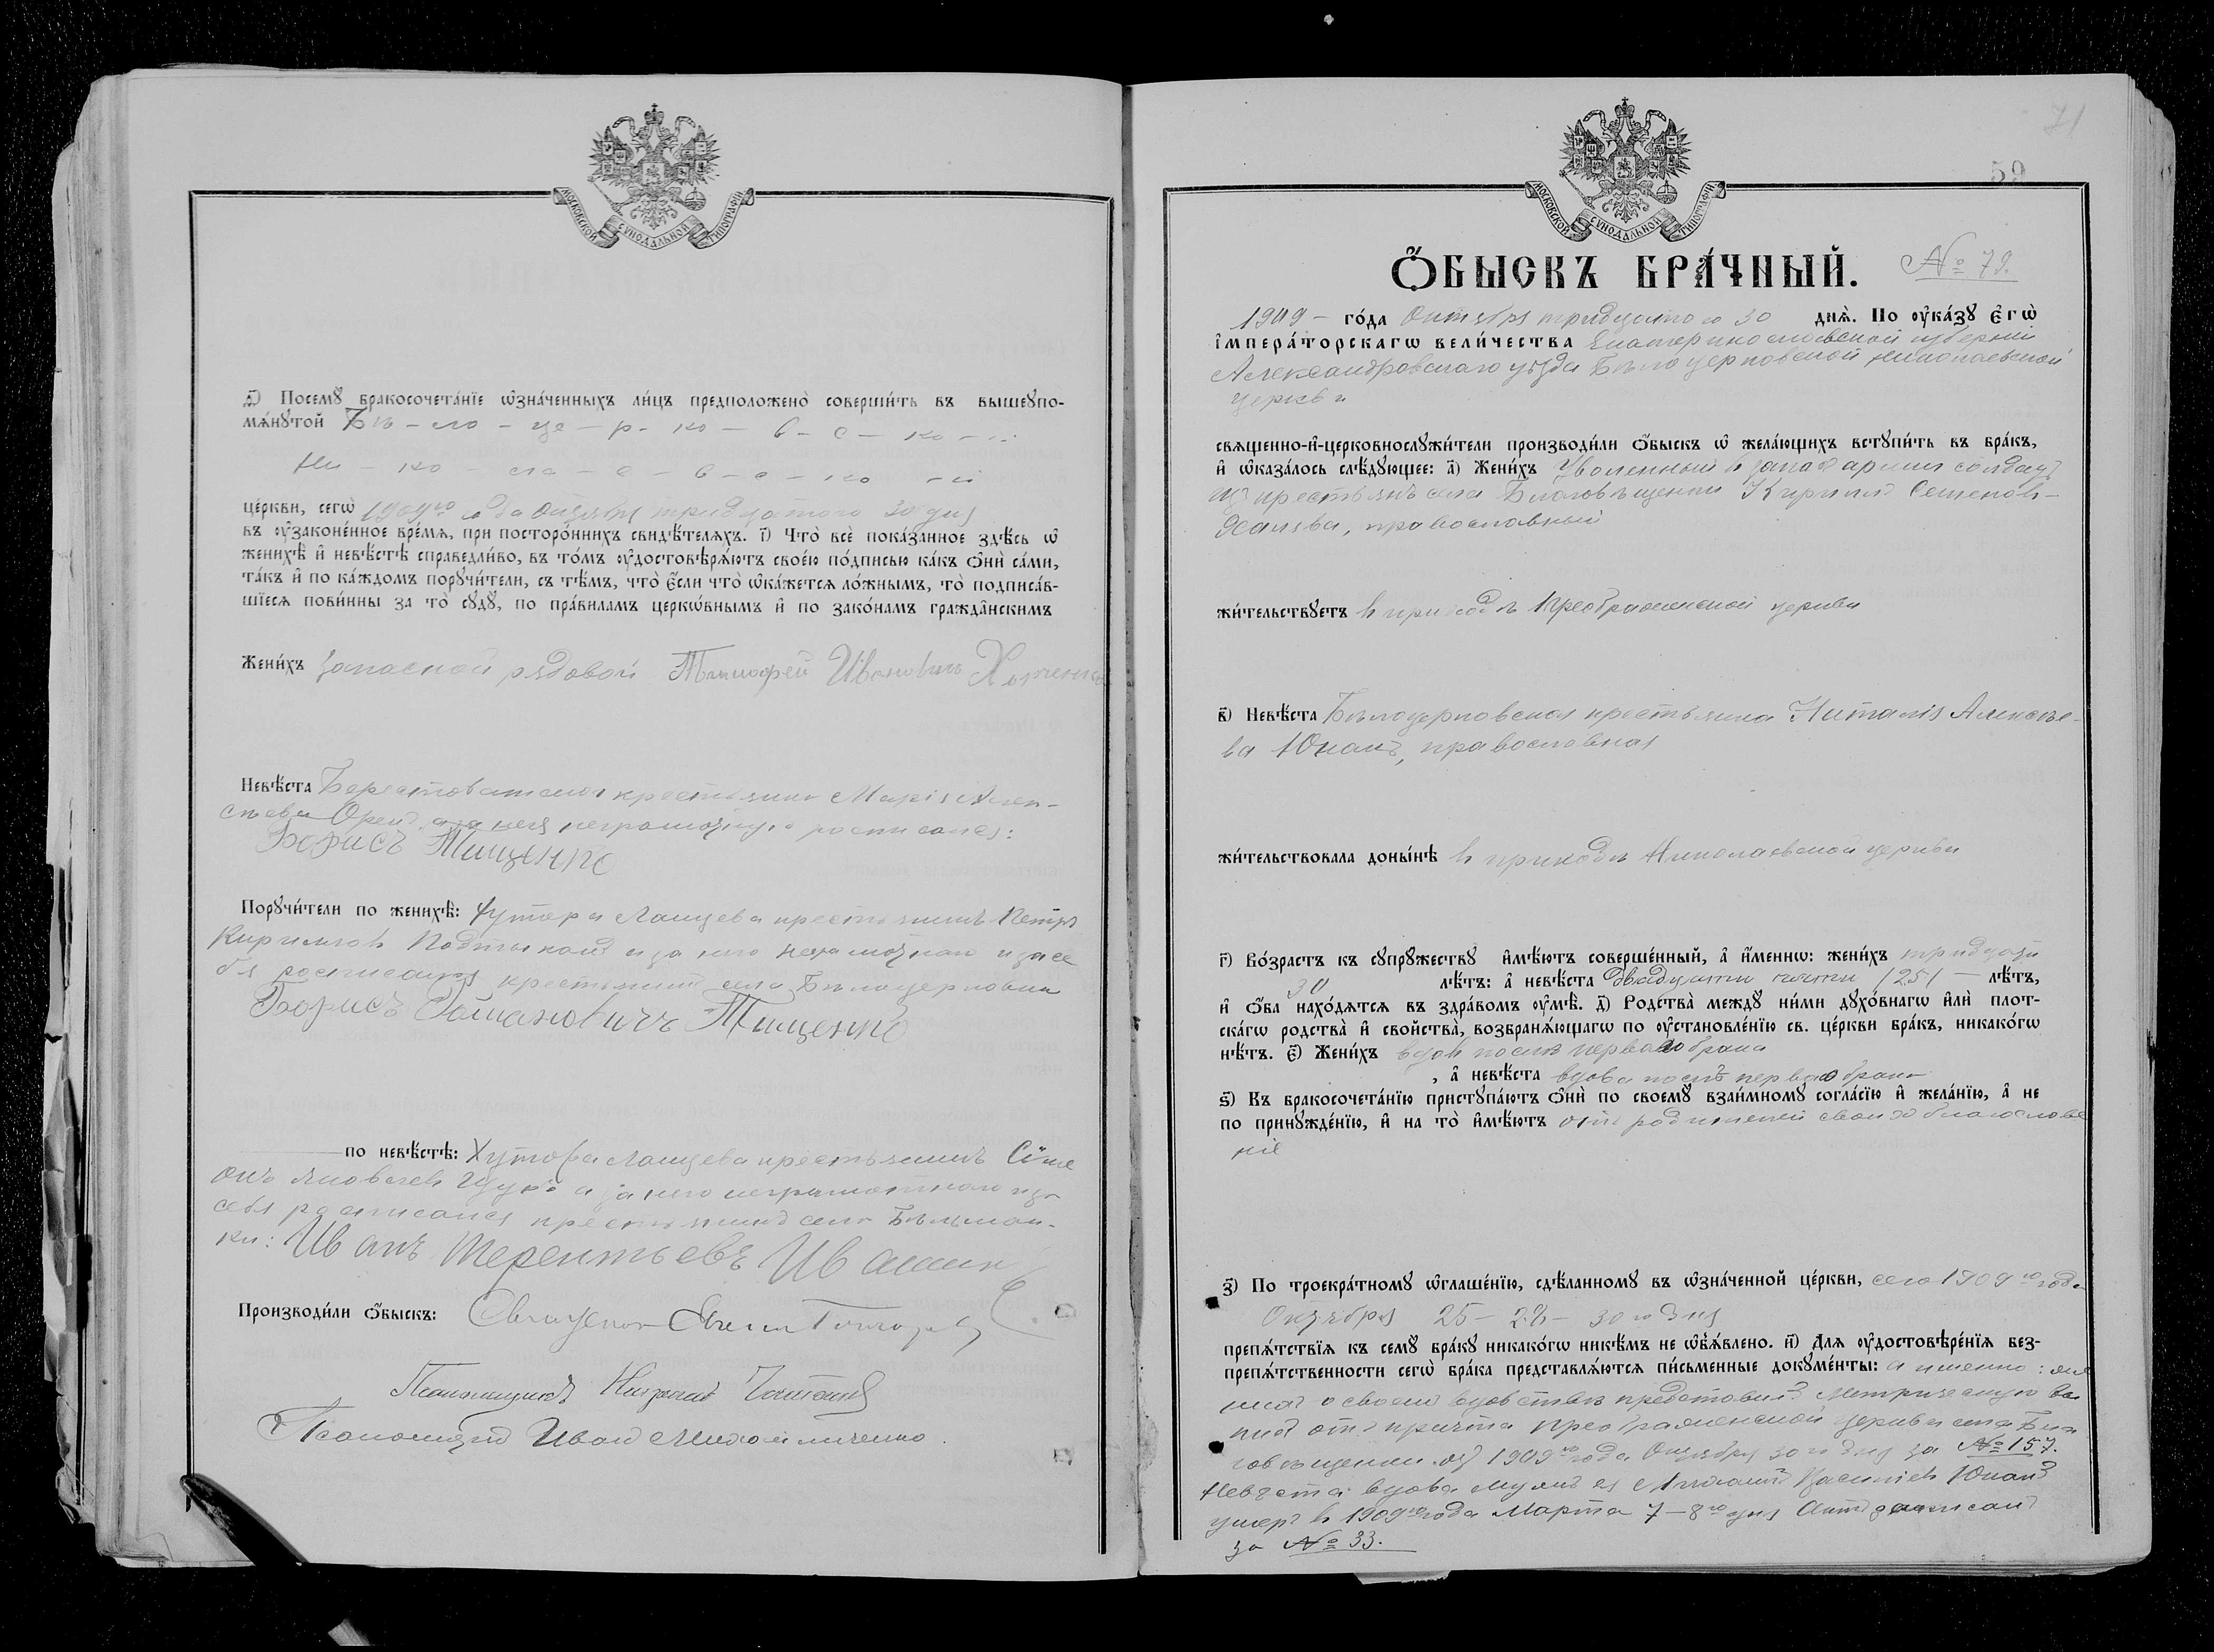 МОСКОВСКОЙ СѴНОДАЛЬНОЙ ТИПОГРАФІИ
и҃) Посемꙋ̀ бракосочета́нїе ѡ҆зна́ченныхъ ли́цъ предположено̀ соверши́ть въ вышеꙋпо-
мѧ́нꙋтой Бѣ-ло-це-р-ко-в-с-ко-й
Ни-ко-ла-е-в-с-ко-й
це́ркви, сегѡ̀ 1909го года Октября тридцатого 30 дня
въ ᲂу҆зако́ненное вре́мѧ, при посторо́ннихъ свидѣ́телѧхъ. ѳ҃) Что̀ всѐ пока́занное здѣ́сь ѡ҆
женихѣ̀ и҆ невѣ́стѣ справедли́во, въ то́мъ ᲂу҆достовѣрѧ́ютъ свое́ю по́дписью ка́къ ѻ҆нѝ са́ми,
та́къ и҆ по ка́ждомъ порꙋчи́тели, съ тѣ́мъ, что̀ є҆́сли что̀ ѡ҆ка́жетсѧ ло́жнымъ, то̀ подписа́в-
шїесѧ пови́нны за то̀ сꙋдꙋ̀, по пра́виламъ церкѡ́внымъ и҆ по зако́намъ гражда̂нскимъ
Жени́хъ Запасной рядовой Тимофей Ивановичъ
Невѣ́ста крестьянка Марія Алек-
сѣева а за нея неграмотную росписался:
Борисъ Тищенко
Порꙋчи́тели по женихѣ̀: Хутора Ланцева крестьянинъ Петръ
Кирилловъ а за него неграмотнаго и за се
бя росписался крестьянинъ села Бѣлоцерковки
Борисъ Романовичъ Тищенко
по невѣ́стѣ: Хутора Ланцева крестьянинъ Симе
онъ Яковлевъ а за него неграмотнаго и за
себя расписался крестьянинъ села Бѣльман-
ки: Иванъ Терентьевъ
Производи́ли ѻ҆́быскъ: Священникъ
Псаломщикъ
Псаломщикъ Иванъ Михайличенко.
71
59
МОСКОВСКОЙ СѴНОДАЛЬНОЙ ТИПОГРАФІИ
Ѻ҆́БЫСКЪ БРА́ЧНЫЙ. № 79.
1909 – го́да Октября тридцатого 30 днѧ̀. По ᲂу҆ка́зꙋ є҆гѡ̀
і҆мпера́торскагѡ вели́чества Екатеринославской губерніи
Александровскаго уѣзда Бѣлоцерковской Николаевской
церкви
свѧщенно-и҆-церковнослꙋжи́тели производи́ли ѻ҆́быскъ ѡ҆ жела́ющихъ встꙋпи́ть въ бра́къ,
и҆ ѡ҆каза́лось слѣ́дꙋющее: а҃) Жени́хъ Уволенный въ запасъ арміи солдатъ
изъ крестьянъ села Благовѣщенки Кириллъ Семеновъ
православный
жи́тельствꙋетъ въ приходѣ Преображенской церкви
в҃) Невѣ́ста Бѣлоцерковская крестьянка Наталія Алексѣе-
ва Юнакъ, православная
жи́тельствовала доны́нѣ въ приходѣ Николаевской церкви
г҃) Во́зрастъ къ сꙋпрꙋ́жествꙋ и҆мѣ́ютъ соверше́нный, а҆ и҆́меннѡ: жени́хъ тридцати
30 лѣ́тъ: а҆ невѣ́ста двадцати пяти /25/ – лѣ́тъ,
и҆ ѻ҆́ба нахо́дѧтсѧ въ здра́вомъ ᲂу҆мѣ̀. д҃) Родства̀ междꙋ̀ ни́ми дꙋхо́внагѡ и҆лѝ плот-
ска́гѡ родства̀ и҆ сво́йства̀, возбранѧ́ющагѡ по ᲂу҆становле́нїю св. це́ркви бра́къ, никако́гѡ
нѣ́тъ. є҃) Жени́хъ вдовъ послѣ перваго брака
, а҆ невѣ́ста вдова послѣ перваго брака
ѕ҃) Къ бракосочета́нїю пристꙋпа́ютъ ѻ҆нѝ по своемꙋ̀ взаи́мномꙋ согла́сїю и҆ жела́нїю, а҆ не
по принꙋжде́нїю, и҆ на то̀ и҆мѣ́ютъ отъ родителей своихъ благослове
ніе
з҃) По троекра́тномꙋ ѡ҆глаше́нїю, сдѣ́ланномꙋ въ ѡ҆зна́ченной це́ркви, сего 1909го года
Октября 25 – 28 – 30го дня
препѧ́тствїѧ къ семꙋ̀ бра́кꙋ никако́гѡ никѣ́мъ не ѡ҆б̾ѧ́влено. и҃) Длѧ ᲂу҆достовѣре́нїѧ без-
препѧ́тственности сегѡ̀ бра́ка представлѧ́ютсѧ пи́сьменные докꙋме́нты: а именно: же
нихъ о своемъ вдовствѣ представилъ Метрическую вы
пись отъ причта Преображенской церкви села Бла
говѣщенки отъ 1909го года Октября 30го дня за № 157.
Невѣста: вдова мужъ ея Юнакъ
умеръ въ 1909го года Марта 7–8го дня Актъ записанъ
за № 33.